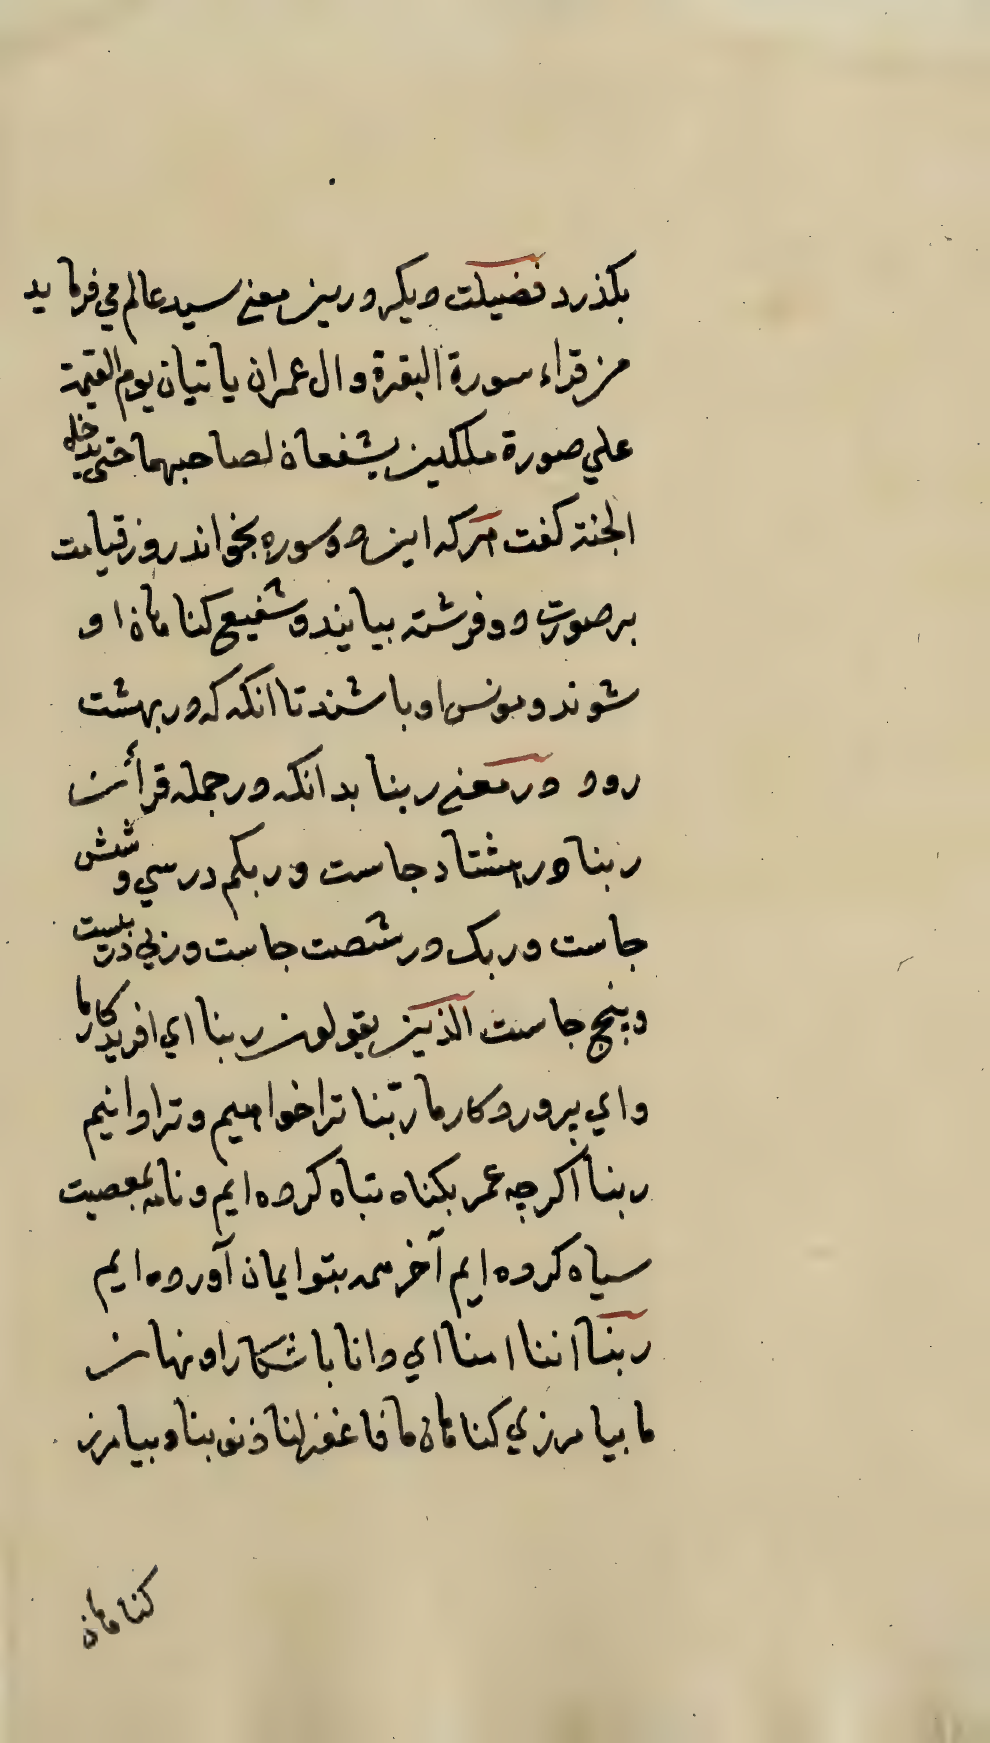 بکذرد فضیلت دیکر درین معنی سید عالم می فرماید
من قراء سورة البقرة وال عمران یاتیان یوم القیمة
علي صورة ملکین یشفعان لصاحبهما حتی یدخله
الجنة کفت هرکه این دو سوره بخواند روز قیامت
بر صورت دو فرشته بیایند و شفیع کناهان او
شوند و مونس او باشند تا انکه که در بهشت
رود در معنی ربنا بدانکه در جمله قرأن
ربنا در هشتاد جاست و ربکم در سي و شش
جاست و ربک در شصت جاست و ربي در بیست
و پنج جاست الذین یقولون ربنا اي افریدکار ما
و اي پروردکار ما ربّنا ترا خواهیم و ترا دانیم
ربنا اکرچه عمر بکناه تباه کرده ایم و نامه بمعصیت
سیاه کرده ایم آخر همه بتو ایمان آورده ایم
ربنا اننا امنا اي دانا باشکارا و نهان
ما بیامرزي کناهان ما فاغفرلنا ذنوبنا و بیامرز
کناهان